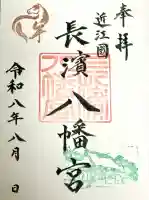 奉拝
近江國
長濱八幡宮
令和八年八月 日